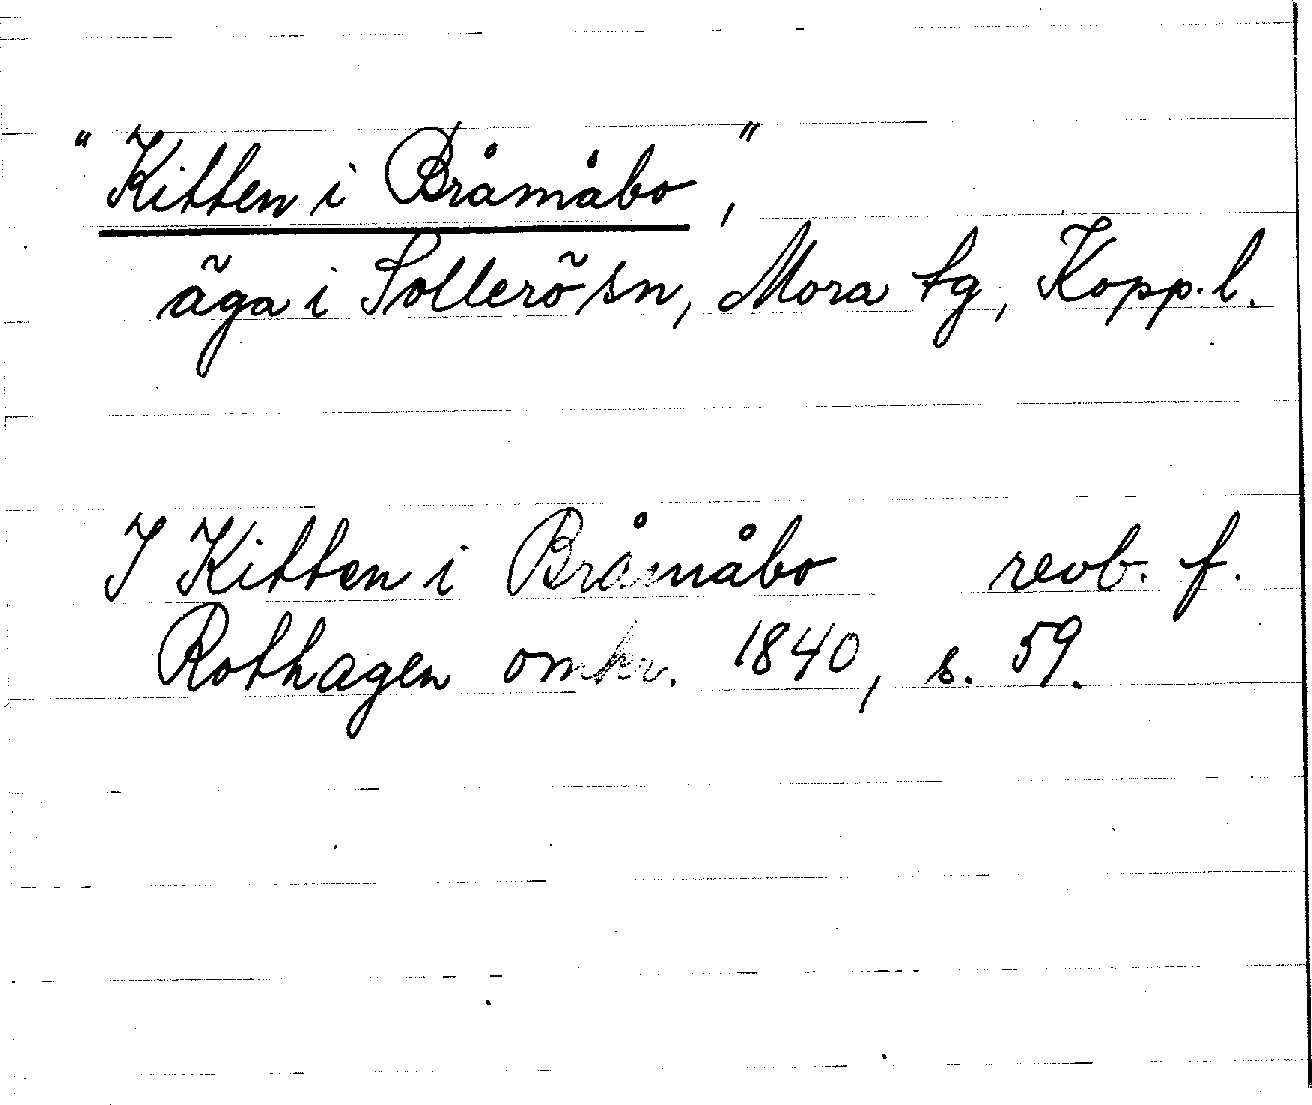 "Kitten i Bråmåbo,"
äga i Sollerö sn, Mora tg, Kopp. l.
I Kitten i Bråmåbo revb. f.
Rothagen omkr. 1840, s. 59.